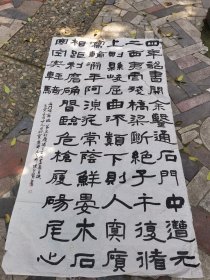 四年詔書開余鑿通石門中遭元
二西夷虐殘橋梁斷絕子午復循
上則縣峻屈曲流顛下則入冥廎
寫輸淵平阿淖泥常蔭鮮晏木石
相距利磨确磐臨危槍履碭尾心
寒空輿輕騎